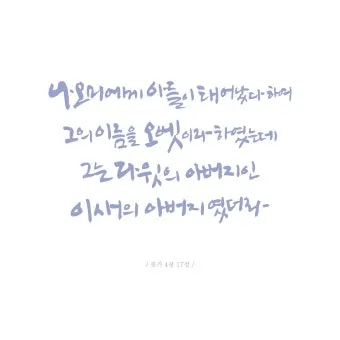 나오미에게 아들이 태어났다 하여
그의 이름을 오벳이라 하였는데
그는 다윗의 아버지인
이새의 아버지였더라
/ 룻기 4장 17절 /